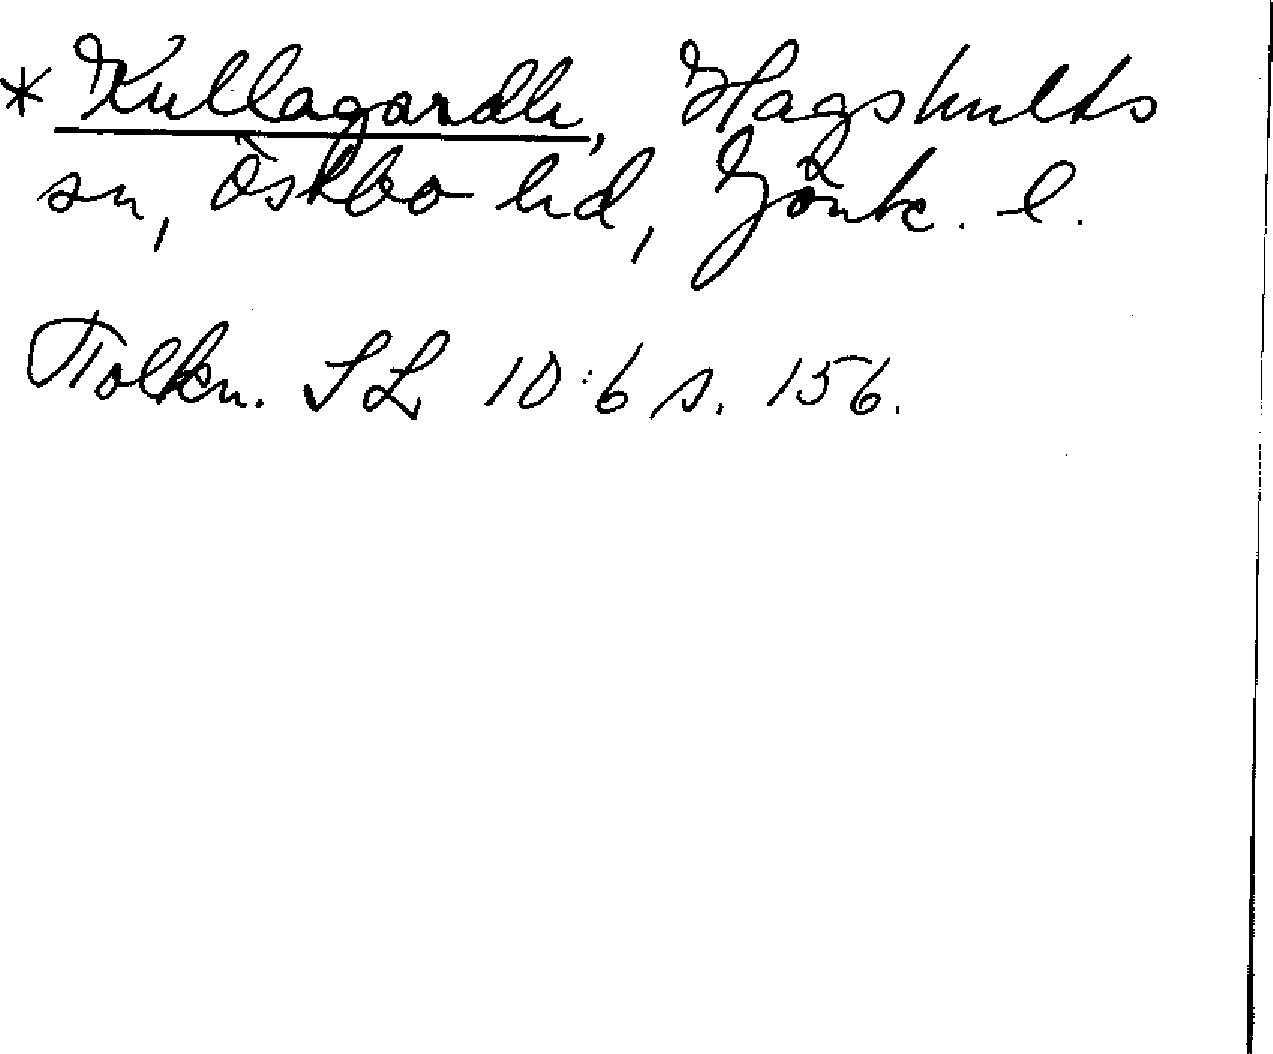 * Kullagardh, Hagshults
sn, Östbo hd, Jönk. l.
Tolkn. SL 10:6 s. 156.